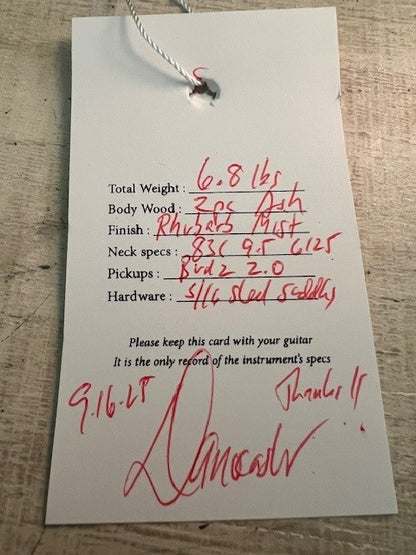 Total Weight : 6.8 lbs
Body Wood : 2pc Ash
Finish : Rhubarb Mist
Neck specs : .83C 9.5 6125
Pickups : Birdz 2.0
Hardware : Steel Saddles
Please keep this card with your guitar
It is the only record of the instrument's specs
9.16.25 Thanks!!
Danocaster